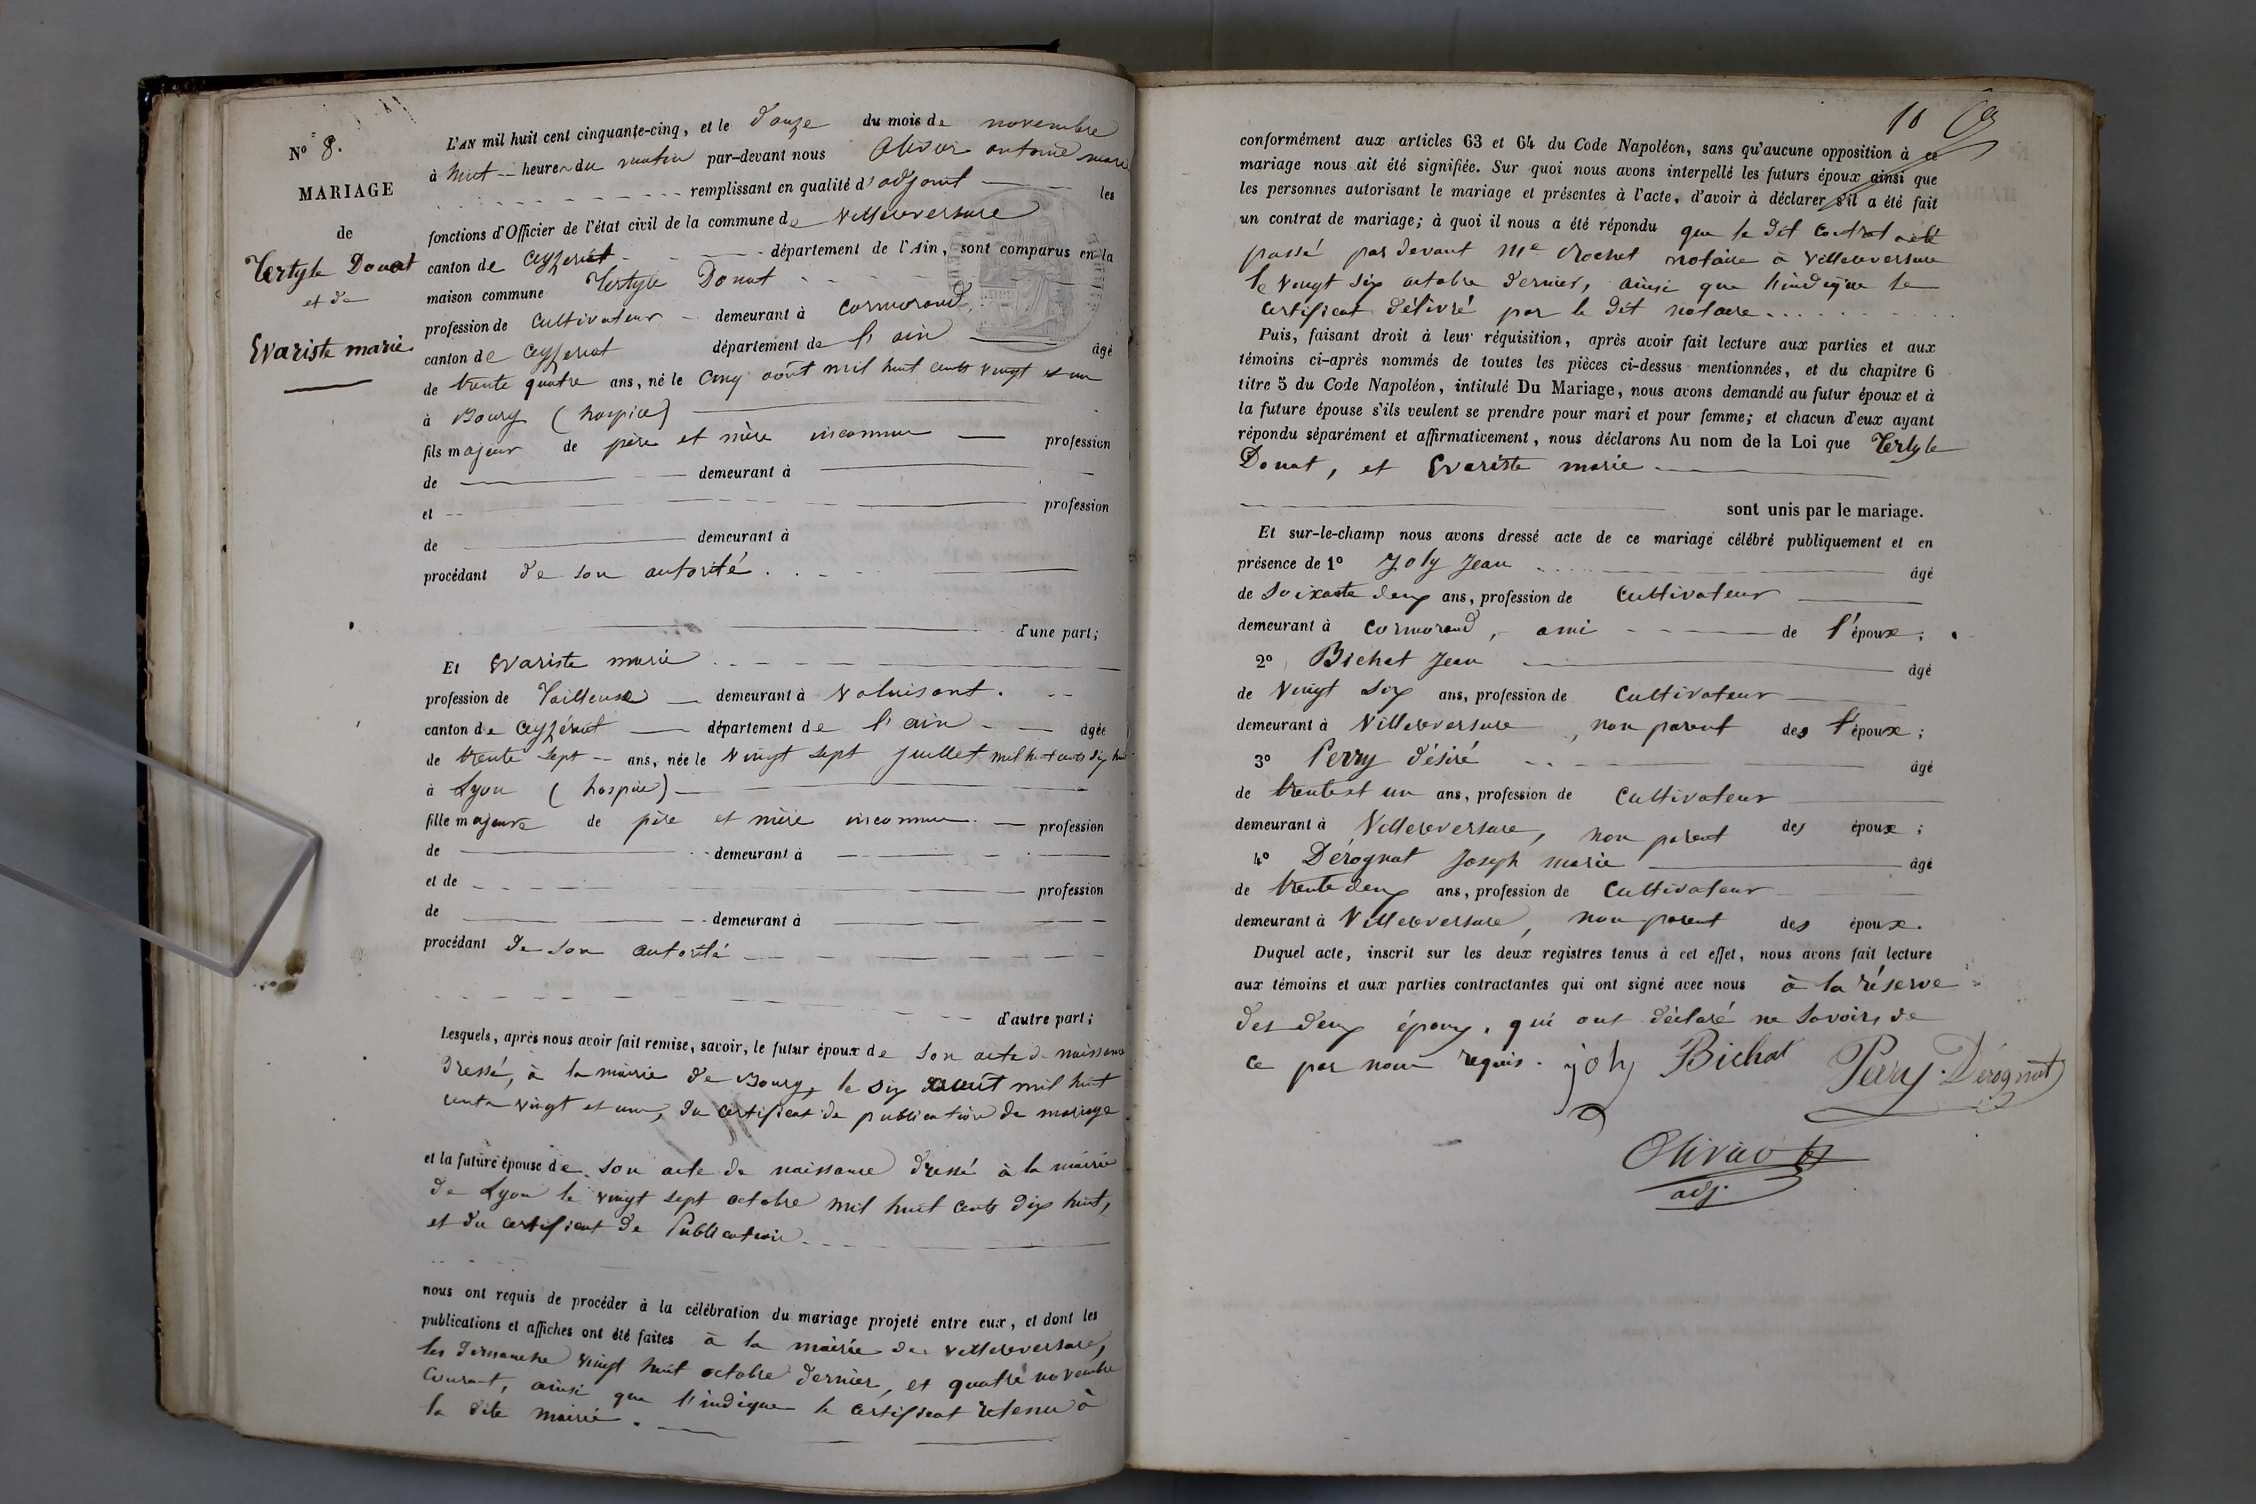 N° 8.
MARIAGE
de
Tertyle Donat
et de
Evariste marie
L'AN mil huit cent cinquante-cinq, et le douze du mois de novembre
à huit heures du matin par-devant nous Olivier antoine marie
remplissant en qualité d'adjoint les
fonctions d'Officier de l'état civil de la commune de Villereversure
canton de Ceyzériat département de l'Ain, sont comparus en la
maison commune Tertyle Donat
profession de Cultivateur demeurant à Cormorand
canton de Ceyzeriat département de l'ain âgé
de trente quatre ans, né le cinq août mil huit cents vingt et un
à Bourg (hospice)
fils majeur de père et mère inconnu profession
de demeurant à
et profession
de demeurant à
procédant de son autorité.
d'une part;
Et Evariste marie
profession de Tailleuse demeurant à Noluisant.
canton de Ceyzériat département de l'ain âgée
de trente sept ans, née le vingt sept juillet mil huit cents dix huit
à Lyon (hospice)
fille majeure de père et mère inconnu. profession
de demeurant à
et de profession
de demeurant à
procédant de son autorité
d'autre part;
Lesquels, après nous avoir fait remise, savoir, le futur époux de son acte de naissance
dressé, à la mairie de Bourg, le six août mil huit
cents vingt et un, du certificat de publication de mariage
et la future épouse de son acte de naissance dressé à la mairie
de Lyon le vingt sept octobre mil huit cents dix huit,
et du certificat de Publication
nous ont requis de procéder à la célébration du mariage projeté entre eux, et dont les
publications et affiches ont été faites à la mairie de villereversure,
les dimanche vingt huit octobre dernier, et quatre novembre
courant, ainsi que l'indique le certificat retenu à
la dite mairie.
10
conformément aux articles 63 et 64 du Code Napoléon, sans qu'aucune opposition à ce
mariage nous ait été signifiée. Sur quoi nous avons interpellé les futurs époux ainsi que
les personnes autorisant le mariage et présentes à l'acte, d'avoir à déclarer s'il a été fait
un contrat de mariage; à quoi il nous a été répondu que le dit contrat a été
passé par devant Me Crochet notaire à Villereversure
le vingt six octobre dernier, ainsi que l'indique le
certificat délivré par le dit notaire
Puis, faisant droit à leur réquisition, après avoir fait lecture aux parties et aux
témoins ci-après nommés de toutes les pièces ci-dessus mentionnées, et du chapitre 6
titre 5 du Code Napoléon, intitulé Du Mariage, nous avons demandé au futur époux et à
la future épouse s'ils veulent se prendre pour mari et pour femme; et chacun d'eux ayant
répondu séparément et affirmativement, nous déclarons Au nom de la Loi que Tertyle
Donat, et Evariste marie
sont unis par le mariage.
Et sur-le-champ nous avons dressé acte de ce mariage célébré publiquement et en
présence de 1° Joly Jean âgé
de soixante deux ans, profession de Cultivateur
demeurant à Cormorand, ami de l'époux;
2° Bichat Jean âgé
de vingt six ans, profession de Cultivateur
demeurant à Villereversure, non parent des époux;
3° Perry désiré âgé
de trente et un ans, profession de Cultivateur
demeurant à Villereversure, non parent des époux;
4° Dérognat Joseph marie âgé
de trente deux ans, profession de Cultivateur
demeurant à Villereversure, non parent des époux.
Duquel acte, inscrit sur les deux registres tenus à cet effet, nous avons fait lecture
aux témoins et aux parties contractantes qui ont signé avec nous à la réserve
des deux époux, qui ont déclaré ne savoir, de
ce par nous requis. joly Bichat Perry. Dérognat
Olivier
adj.